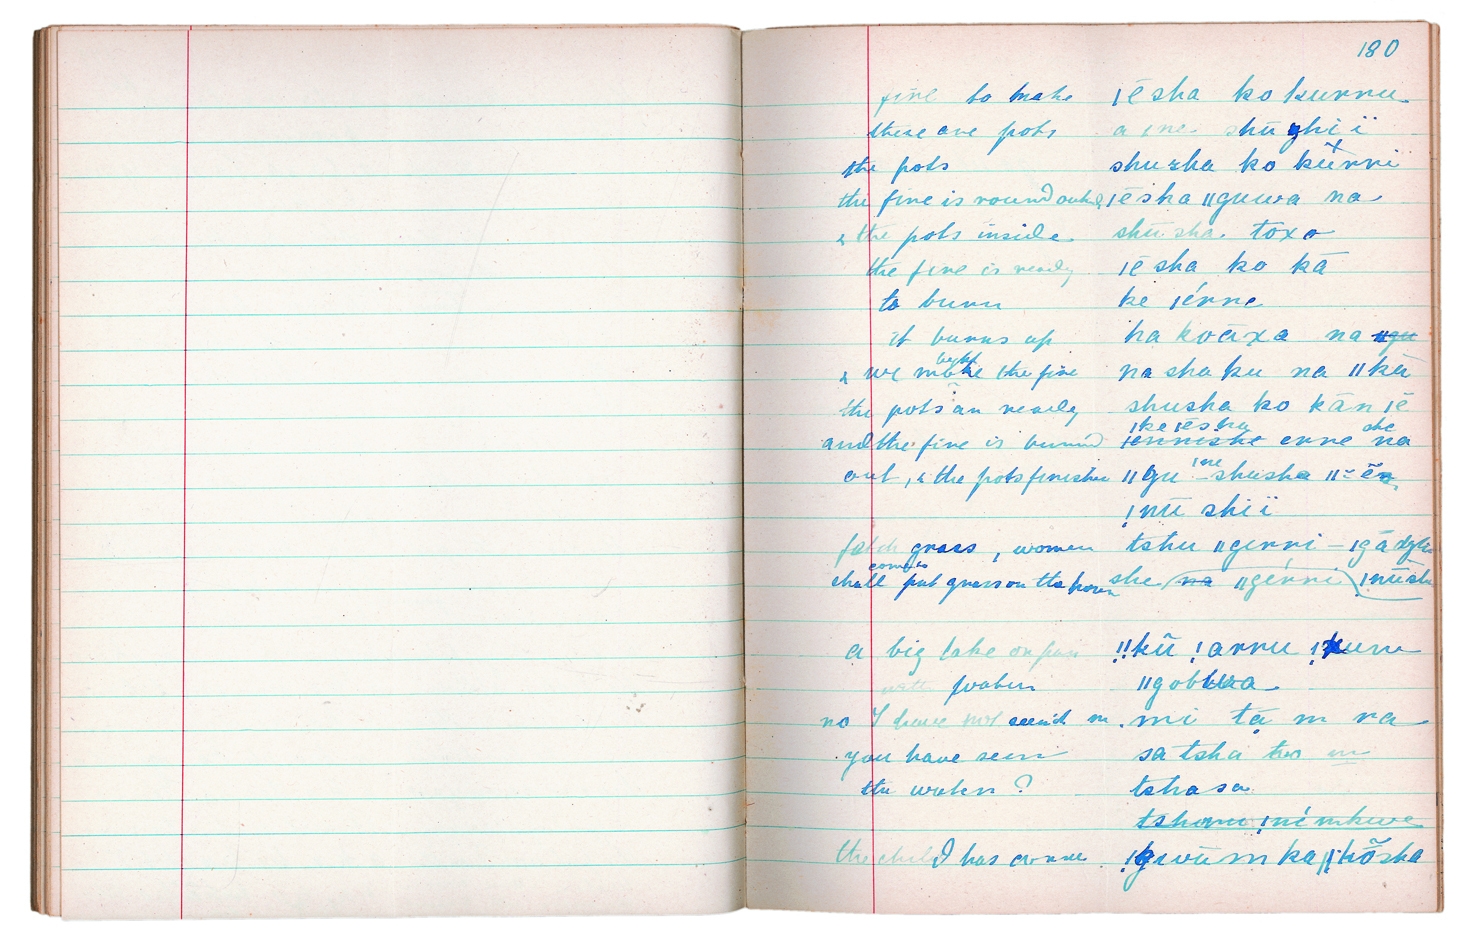 180
fire to make |ē sha ko kurru
these are pots a |ne shū ghi ï
the pots shusha ko kűrri
the fire is round outside |ē sha ||guwa na
& the pots inside shu sha toxo
the fire is ready |ē sha ko kā
to burn ke |érre
it burns up ha koāxa na
bright
& we make the fire na sha ku na ||kā
the pots are ready shusha ko kān |ē
|ke |ēsha she
and the fire is burned erre na
|ne
out, & the pots finished ||gu shusha
!nū shi ï
fetch grass, women tshu ||girri – |gā
shall put grass on the she na ||gérri !nūsh
a big lake or pan !!kũ !arru
with water ||gobwa
no I have not seen it mi tā m ra
you have seen sa tsha
the water? tsha sa
!né
the child has come ka ||kõsha